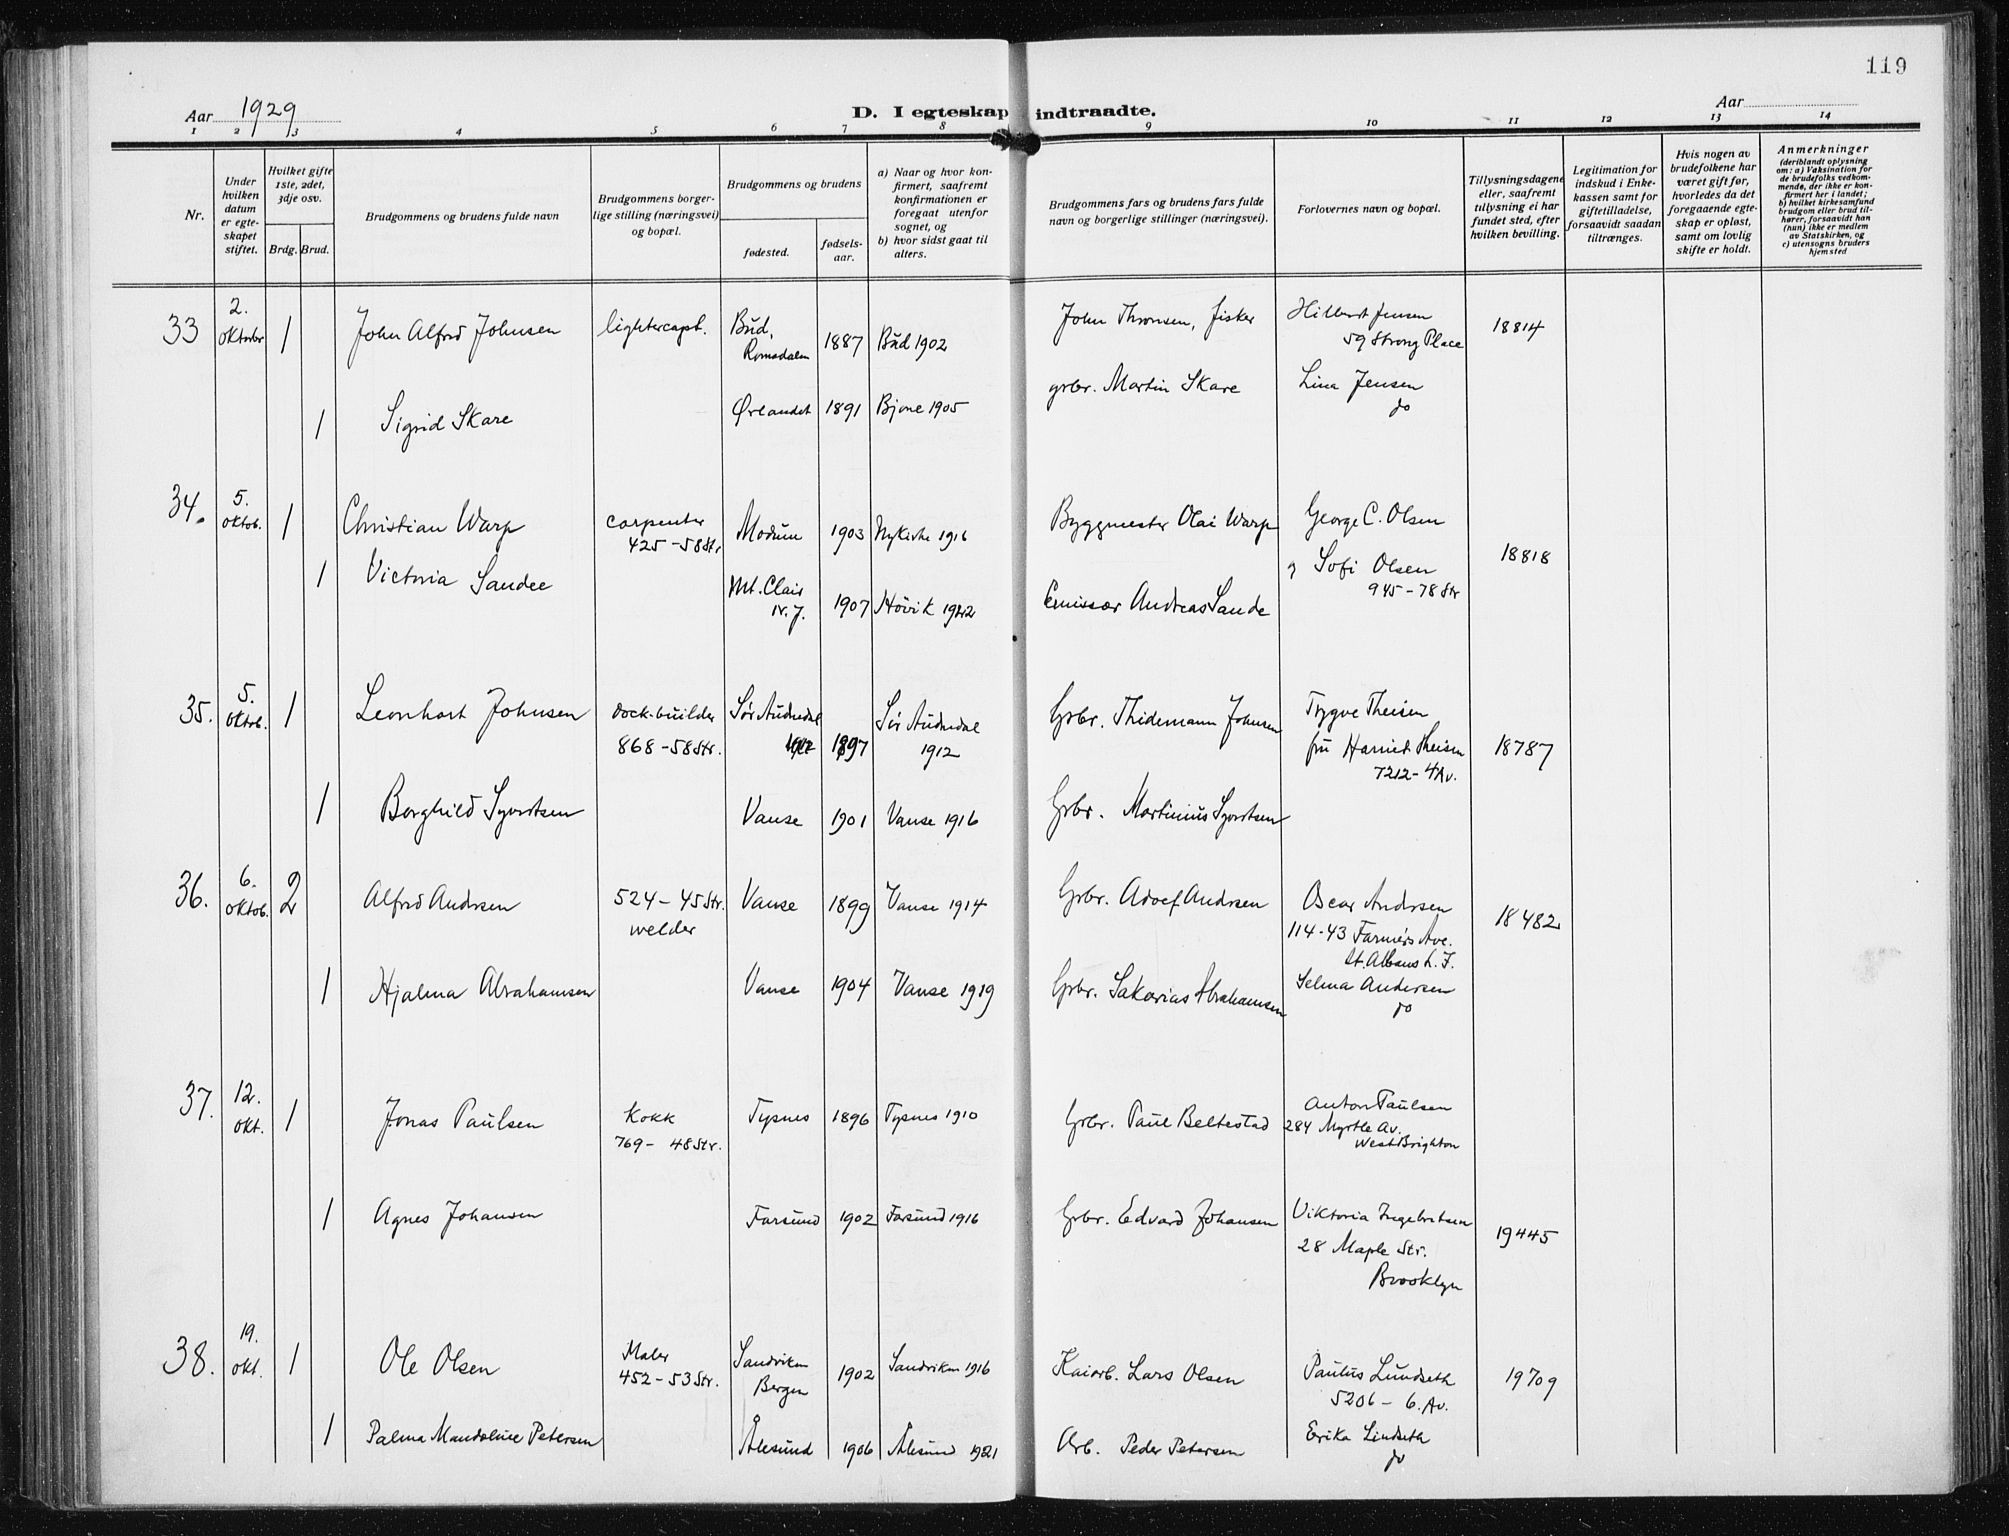 119
Aar 1929
D. I egteskap indtraadte.
Aar
1 2 3 4 5 6 7 8 9 10 11 12 13 14
Nr.
Under hvilken datum er egteskapet stiftet.
Hvilket gifte 1ste, 2det, 3dje osv.
Brdg. Brud.
Brudgommens og brudens fulde navn
Brudgommens borgerlige stilling (næringsvei) og bopæl.
Brudgommens og brudens
fødested.
fødselsaar.
a) Naar og hvor konfirmert, saafremt konfirmationen er foregaat utenfor sognet, og
b) hvor sidst gaat til alters.
Brudgommens fars og brudens fars fulde navn og borgerlige stillinger (næringsvei).
Forlovernes navn og bopæl.
Tillysningsdagene eller, saafremt tillysning ei har fundet sted, efter hvilken bevilling.
Legitimation for indskud i Enkekassen samt for giftetilladelse, forsaavidt saadan tiltrænges.
Hvis nogen av brudefolkene har været gift før, hvorledes da det foregaaende egteskap er opløst, samt om lovlig skifte er holdt.
Anmerkninger
(deriblandt oplysning om: a) Vaksination for de brudefolks vedkommende, der ikke er konfirmert her i landet; b) hvilket kirkesamfund brudgom eller brud tilhører, forsaavidt han (hun) ikke er medlem av Statskirken, og c) utensogns bruders hjemsted
33 2. oktober 1 John Alfred Johnsen lightercapt. Bud, Romsdalen 1887 Bud 1902 John Thronsen, fisker Hilbert Jensen 59 Strong Place 18814
1 Sigrid Skare Ørlandet 1891 Bjone 1905 grbr. Martin Skare Lina Jensen do
34. 5. oktob. 1 Christian Warp carpenter 425-58 Str Modum 1903 Nykirke 1916 Byggmester Olai Warp George C. Olsen
1 Victoria Sandee Mt. Clair N.J. 1907 Høvik 1922 Emissær Andreas Sande og Sofi Olsen 945-78 Str 18818
35. 5. oktob. 1 Leonhart Johnsen dock-builder 868-58 Str. Sør Audnedal 1897 Sør Audnedal 1912 Grbr. Thidemann Johnsen Trygve Theisen fru Harriet Theisen 7212-4 Av. 18787
1 Borghild Syvertsen Vanse 1901 Vanse 1916 Grbr. Martinius Syvertsen
36. 6. oktob. 2 Alfred Andrsen 524-45 Str. welder Vanse 1899 Vanse 1914 Grbr. Adolf Andrsen Oscar Andrsen 114-43 Farmers Ave. St. Albans L.I. 18482
1 Hjalma Abrahamsen Vanse 1904 Vanse 1919 Grbr. Sakarias Abrahamsen Selma Andersen do
37. 12. okt. 1 Jonas Paulsen Kokk 769-48 Str. Tysnes 1896 Tysnes 1910 Grbr. Paul Beltestad Anton Paulsen 284 Myrtle Av. West Brighton
1 Agnes Johansen Farsund 1902 Farsund 1916 Grbr. Edvard Johansen Viktoria Ingebretsen 28 Maple Str. Brooklyn 19445
38. 19. okt. 1 Ole Olsen Maler 452-53 Str. Sandviken Bergen 1902 Sandviken 1916 Kaiarb. Lars Olsen Paulus Lundseth 5206-6. Av. 19709
1 Palma Mandoline Petersen Ålesund 1906 Ålesund 1921 Arb. Peder Petersen Erika Lindseth do